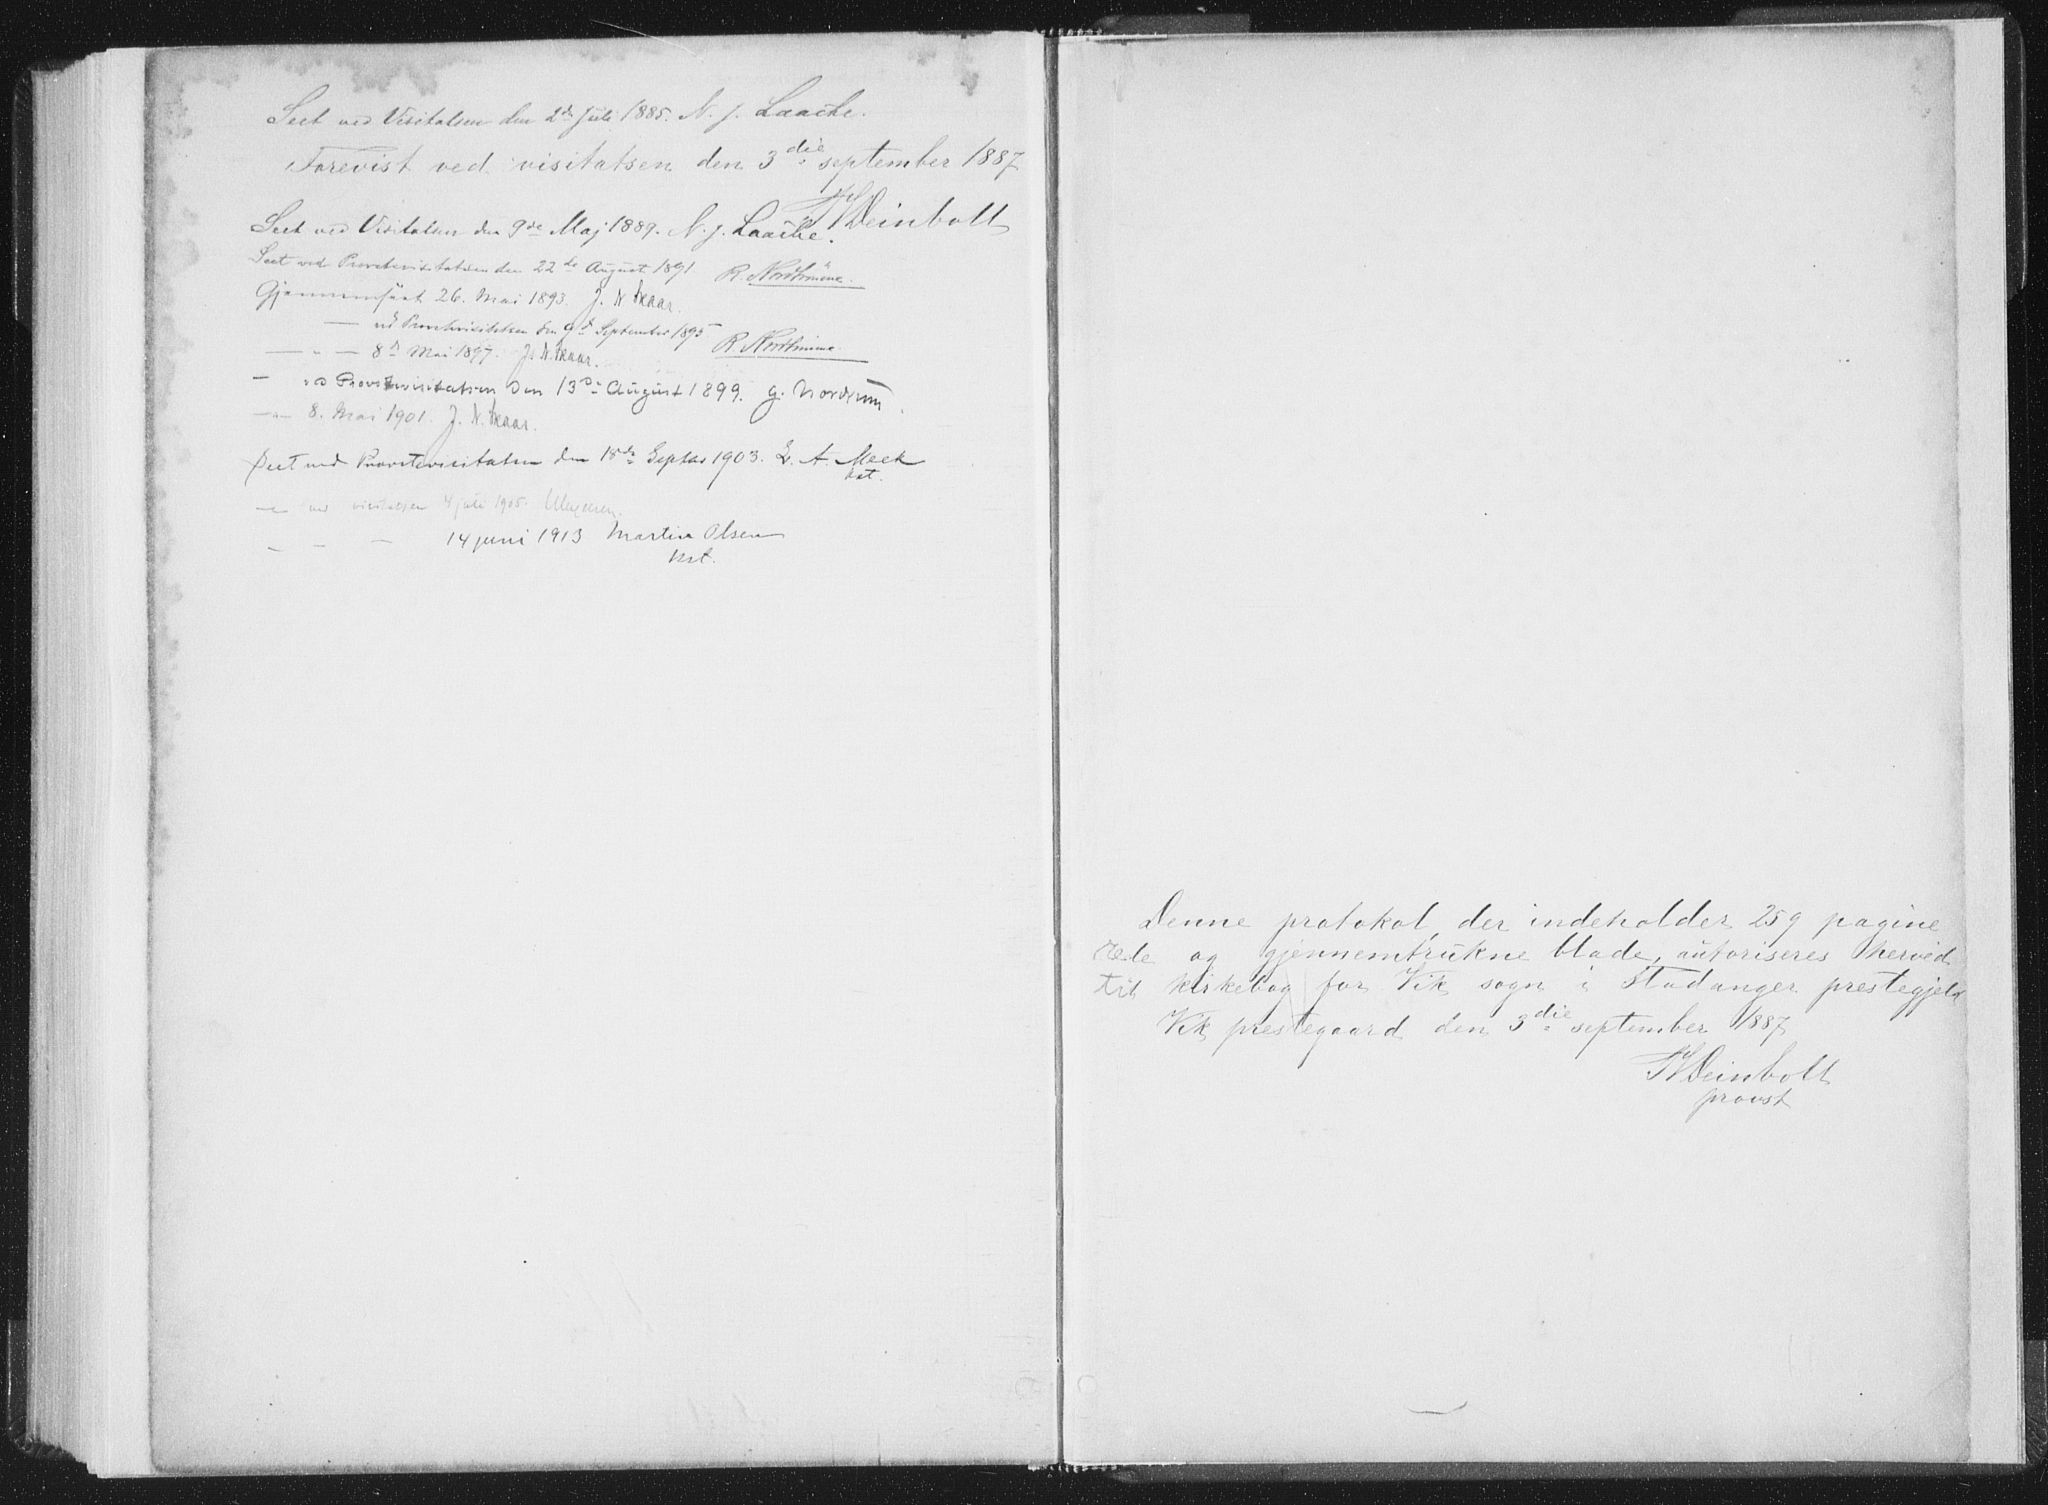 Seet ved Visitatsen den 2de Juli 1885. N. J. Laache.
Forevist ved visitatsen den 3die september 1887
Deinboll
Seet ved Visitatsen den 9de Maj 1889. N. J. Laache.
Seet ved Provstevisitatsen den 22de August 1891 R.
Gjennemseet 26. Mai 1893. J. N. Skaar.
— ved Provstevisitatsen den 9d September 1895 R.
— " — 8d Mai 1897. J. N. Skaar.
— ved Provstevisitatsen den 13de August 1899. G. Nordrum.
— " — 8. Mai 1901. J. N. Skaar.
Seet ved Provstevisitatsen den 18de Septbr 1903. A. Moek
kst.
— " — ved visitatsen 4 juli 1905.
— — — 14 juni 1913 Martin Olsen
kst.
Denne protokol, der indeholder 259 pagine
rede og gjennemtrukne blade, autoriseres herved
til kirkebog for Vik sogn i Stadsbygd prestegjeld
Vik prestegaard den 3die september 1887
Deinboll
provst